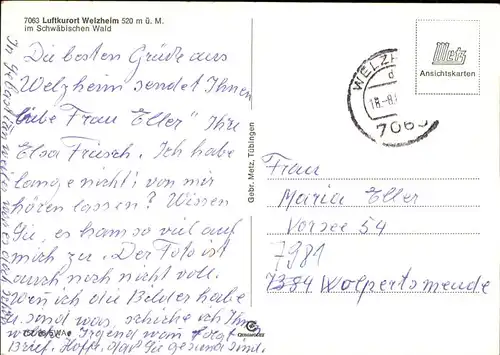 7063 Luftkurort Welzheim 520 m ü. M.
im Schwäbischen Wald
Die besten Grüße aus
Welzheim sendet Ihnen
liebe Frau Eller" Ihre
Elsa Frasch. Ich habe
lange nicht's von mir
hören lassen? Wissen
Sie, es kam so viel auf
mich zu. Der Foto ist
auch noch nicht voll.
Wen ich die Bilder habe
u. sand was, schicke ich Ihnen
Irgend wan folgt
Brief. Hoffe, daß Sie gesund sind.
In
weiter
Gebr. Metz, Tübingen
Metz
Ansichtskarten
WELZH
d
18.-8.
7063
Frau
Maria Eller
Vorsee 54
7981
7384 Wolpertsmende